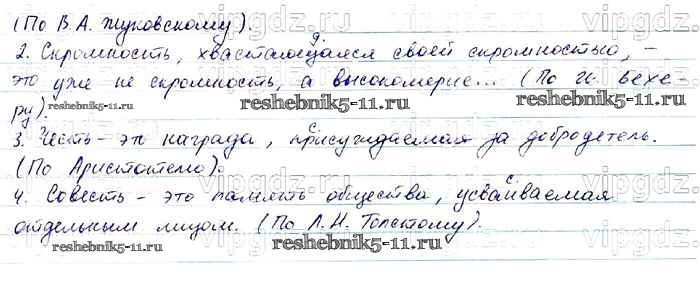 (По В.А. Жуковскому).
д.
2. Скромность, хвастающаяся своей скромностью, –
это уже не скромность, а высокомерие... (По И. Бехе-
ру).
с.
3. Честь – это награда, присуждаемая за добродетель.
(По Аристотелю).
с.
4. Совесть – это память общества, усваиваемая
отдельным лицом. (По Л.Н. Толстому).
vipgdz.ru
reshebnik5-11.ru
reshebnik5-11.ru
reshebnik5-11.ru
reshebnik5-11.ru
reshebnik5-11.ru